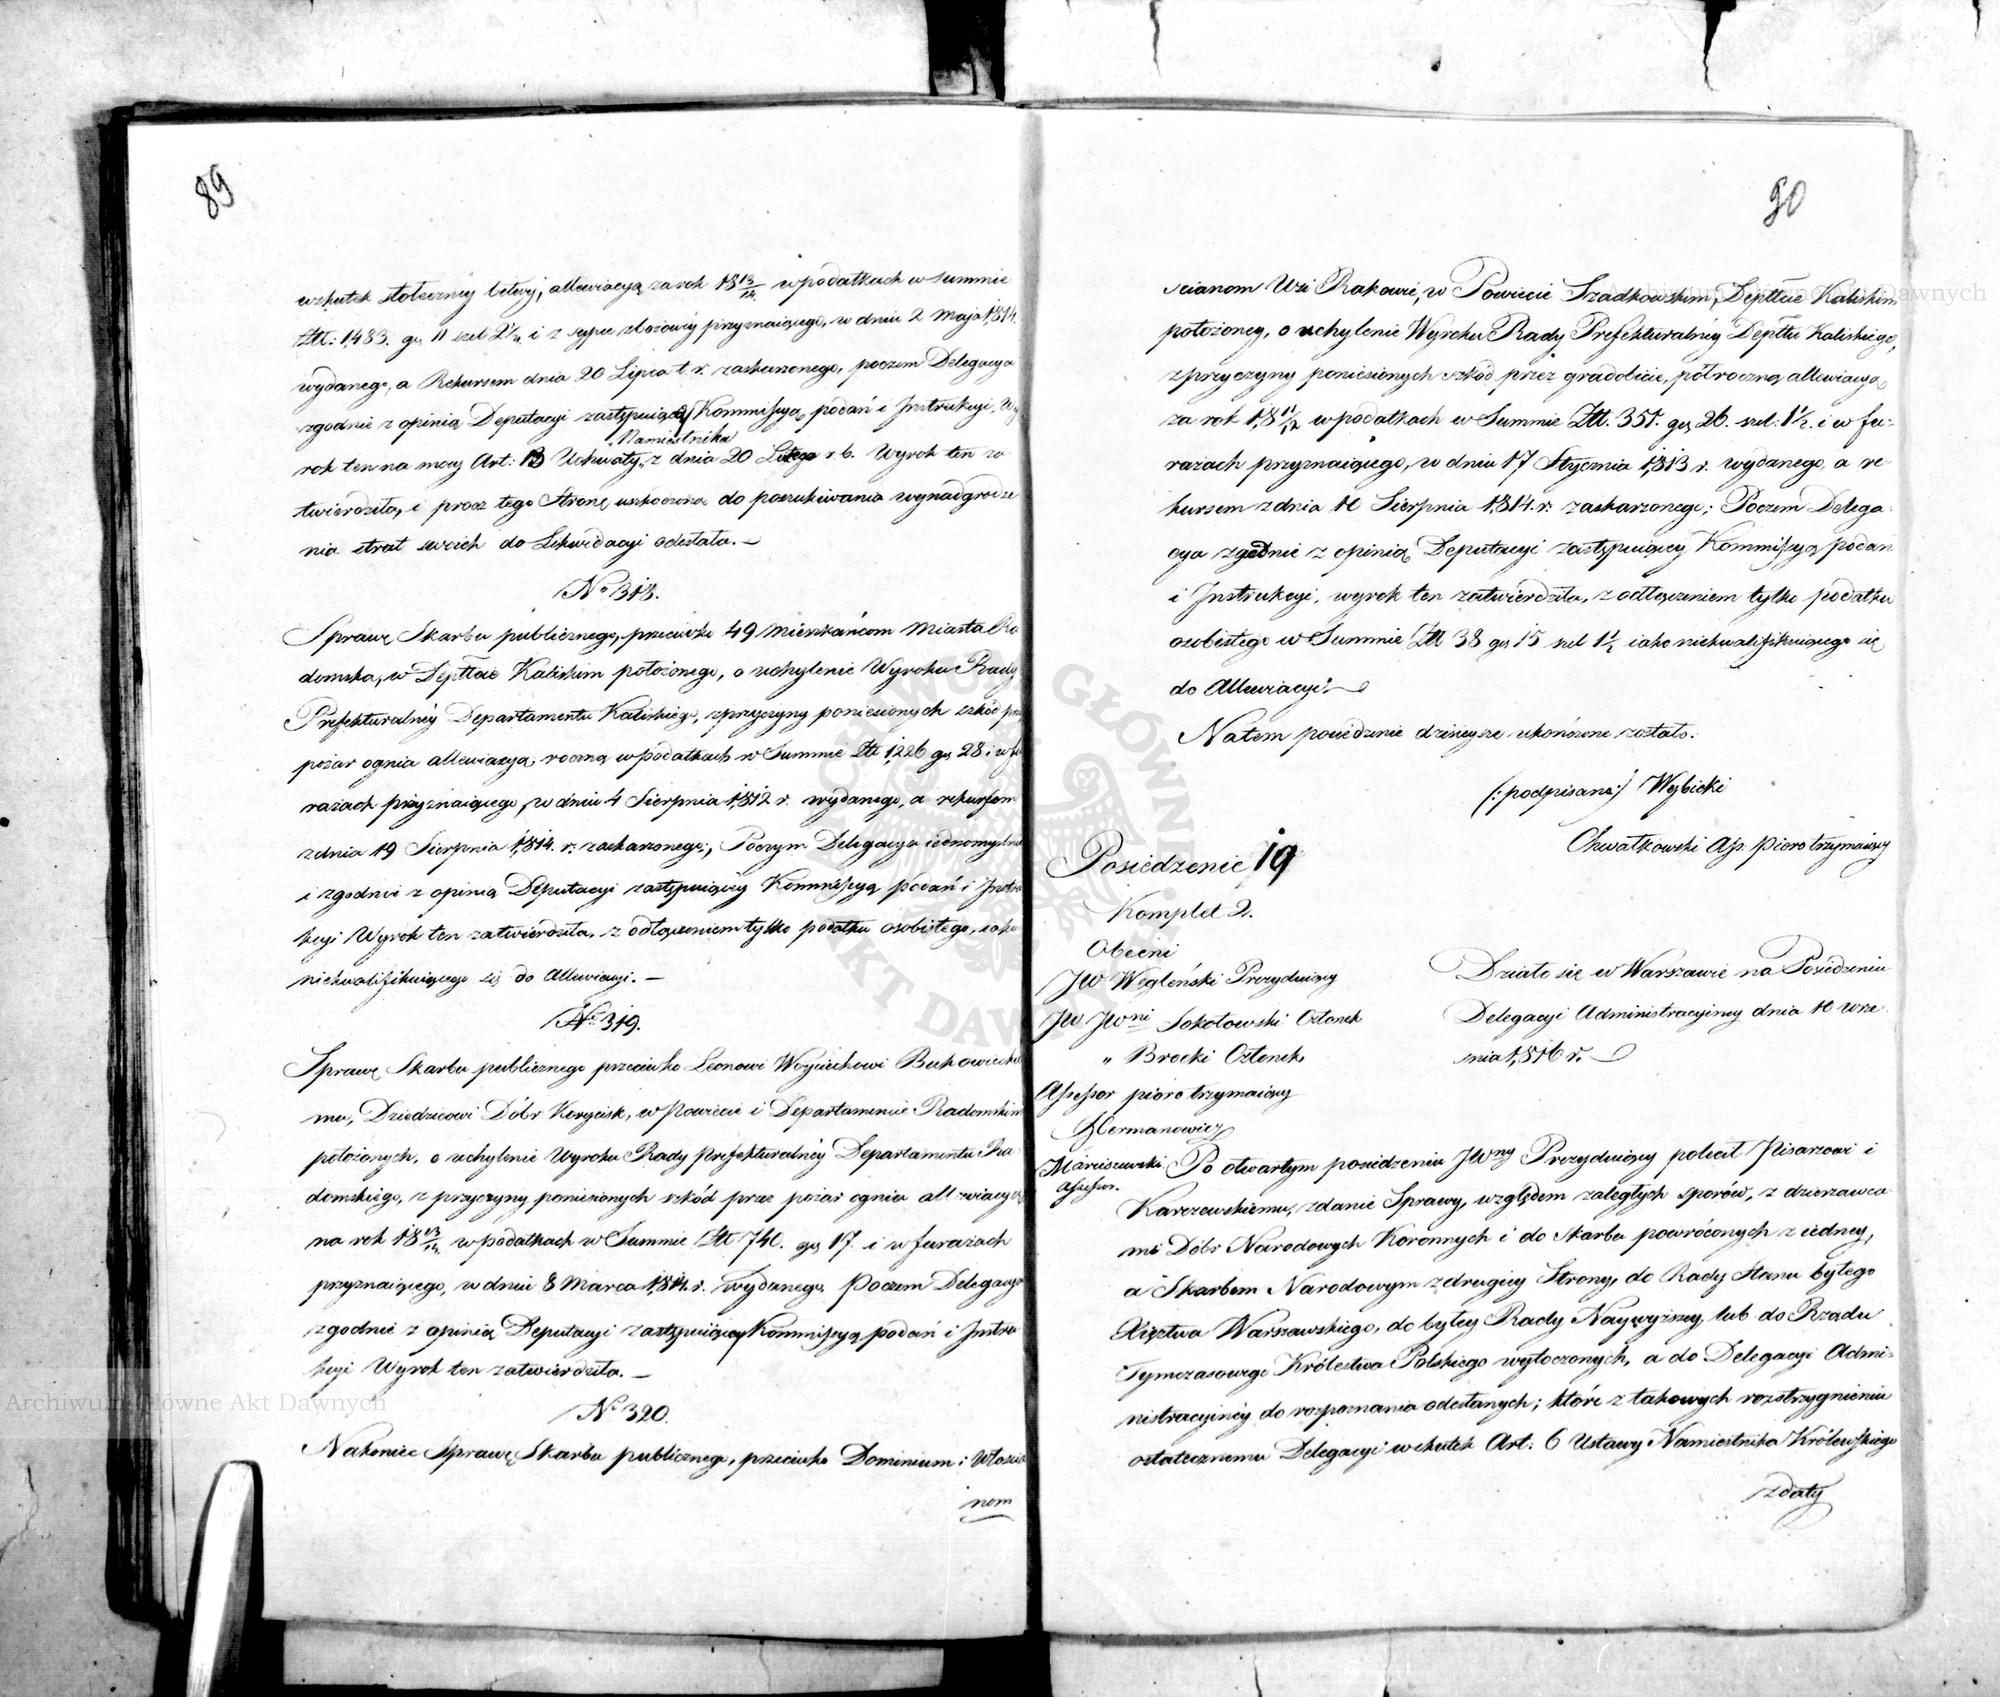 89
wskutek stołeczney allewiacyą za rok 18 13/14. w podatkach w summie
Ztt: 1,483. gr 11 szel 2 1/4 i z sypce zbożowey przyznaiącego, w dniu 2 Maja 1,814.
wydanego, a Rekursem dnia 20 Lipca t. r. zaskarzonego, poczem Delegacya
zgodnie z opinią Deputacyi zastępuiącey Kommissyą podań i Instrukcyi, Wy-
rok ten na mocy Art: 13 Uchwały „Namiestnika„ z dnia 20 Lutego r. b. Wyrok ten za
twierdziła, i procz tego Stronę uszkodzoną do poszukiwania wynadgrodze
nia strat swoich do Likwidacyi odesłała. —
No 318.
Sprawę Skarbu publicznego, przeciwko 49 Mieszkańcom Miasta Ra
domska, w Depttcie Kaliskim położonego, o uchylenie Wyroku Rady
Prefekturalney Departamentu Kaliskiego, z przyczyny poniesionych szkód prze
pożar ognia allewiacyą roczną w podatkach w Summie Ztt 1,226 gr 28 i w fu
rażach przyznaiącego, w dniu 4 Sierpnia 1,812 r. wydanego, a rekursem
z dnia 19 Sierpnia 1,814. r. zaskarzonego; Poczym Delegacya iednomyślnie
i zgodnie z opinią Deputacyi zastępuiącey Kommissyą podań i Instru
kcyi Wyrok ten zatwierdziła, z odłączeniem tylko podatku osobistego, iako
niekwalifikuiącego się do Allewiacyi. —
No 319.
Sprawę Skarbu publicznego przeciwko Leonowi Woyciechowi Bukowieckie
mu, Dziedzicowi Dóbr w Powiecie i Departamencie Radomskim
położonych, o uchylenie Wyroku Rady Prefekturalney Departamentu Ra-
domskiego, z przyczyny poniesionych szkód prze pożar ognia allewiacyą
na rok 18 13/14. w podatkach w Summie Ztt 740. gr 17. i w furażach
przyznaiącego, w dniu 8 Marca 1,814. r. wydanego. Poczem Delegacya
zgodnie z opinią Deputacyi zastępuiącey Kommissyą podań i Instru
kcyi Wyrok ten zatwierdziła. —
No 320.
Nakoniec Sprawę Skarbu publicznego, przeciwko Dominium i Włościa
nom
90
scianom Wsi Rakowic, w Powiecie Szadkowskim, Depttcie Kaliskim
położoney, o uchylenie Wyroku Rady Prefekturalney Depttu Kaliskiego,
z przyczyny poniesionych szkód przez gradobicie, półroczną allewiacyą
za rok 1,8 11/12 w podatkach w Summie Ztt. 351. gr 26. szel: 1 1/2. i w fu-
rażach przyznaiącego, w dniu 17 Stycznia 1,813 r. wydanego, a re
kursem z dnia 10 Sierpnia 1,814. r. zaskarzonego; Poczem Delega-
cya zgodnie z opinią Deputacyi zastępuiącey Kommissyą podań
i Instrukcyi, wyrok ten zatwierdziła, z odłączeniem tylko podatku
osobistego w Summie Ztt 38 gr 15 szel 1 1/2 iako niekwalifikuiącego się
do Allewiacyi. —
Natem posiedzenie dzisieysze ukończone zostało.
(:podpisano:) Wybicki
Chwałkowski Ass. pioro trzymaiący
Posiedzenie 19
Komplet 2.
Obecni
JW Węgleński Prezyduiący
JW JWni Sokołowski Członek
„ Brocki Członek
Assessor pioro trzymaiący
Hermanowicz
Marciszewski
assessor.
Działo się w Warszawie na Posiedzeniu
Delegacyi Administracyiney dnia 10 Wrze-
śnia 1,816 r.
Po otwartym posiedzeniu JWny Prezyduiący polecił Pisarzowi i
Karczewskiemu, zdanie Sprawy, względem zaległych sporów, z dzierzawca
mi Dóbr Narodowych Koronnych i do Skarbu powróconych z iedney,
a Skarbem Narodowym z drugiey Strony, do Rady Stanu byłego
Xięztwa Warszawskiego, do byłey Rady Naywyższey, lub do Rządu
Tymczasowego Królestwa Polskiego wytoczonych, a do Delegacyi Admi-
nistracyiney do rozpoznania odesłanych; które z takowych rozstrzygnieniu
ostatecznemu Delegacyi wskutek Art: 6 Ustawy Namiestnika Królewskiego
z daty
Archiwum Główne Akt Dawnych
Archiwum Główne Akt Dawnych
ARCHIWUM GŁÓWNE AKT DAWNYCH